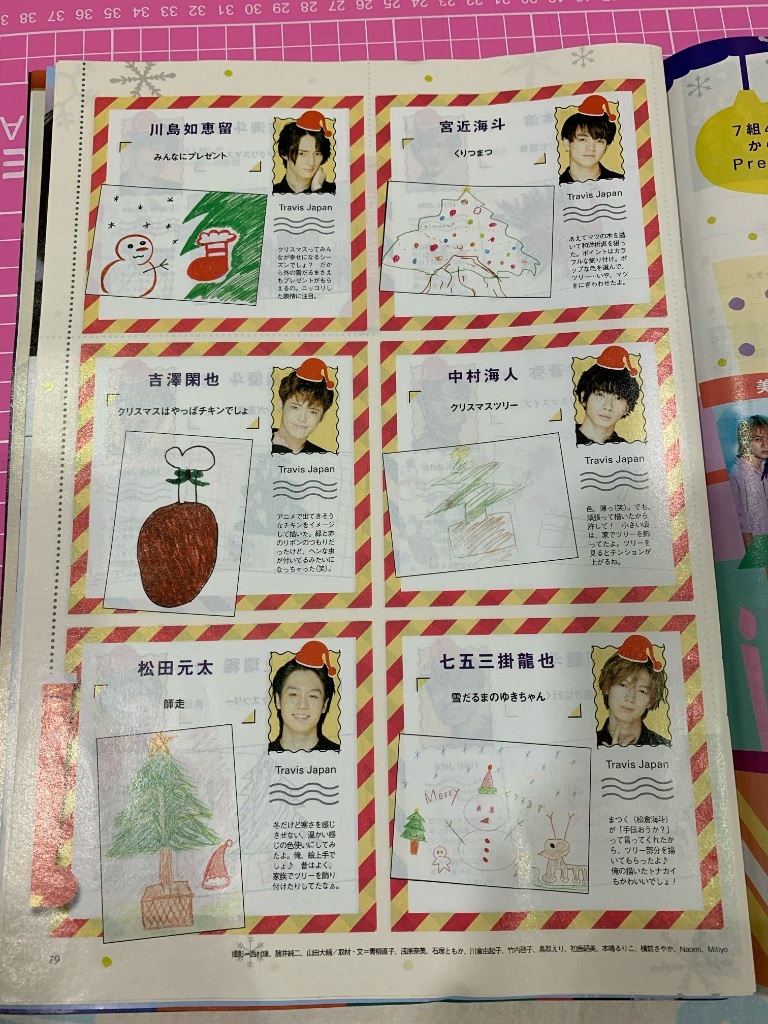 38 37 36 35 34 33 32 31 30 29 28 27 26 25 24 23 22 21
川島如恵留
みんなにプレゼント
Travis Japan
クリスマスってみん
なが幸せになるシー
ズンでしょ? だか
ら外の雪だるまさえ
もプレゼントがもら
えるの。ニッコリし
た表情に注目。
宮近海斗
くりつまつ
Travis Japan
あえてマツの木を描
いて和洋折衷を狙っ
た。ポイントはカラ
フルな飾り付け。ポ
ップな色を選んで、
ツリー…いや、マツ
をにぎわわせたよ。
吉澤閑也
クリスマスはやっぱチキンでしょ
Travis Japan
アニメで出てきそう
なチキンをイメージ
して描いた。緑と赤
のリボンのつもりだ
ったけど、ヘンな虫
が付いてるみたいに
なっちゃった(笑)。
中村海人
クリスマスツリー
Travis Japan
色、薄っ(笑)。でも、
頑張って描いたから
許して! 小さい頃
は、家でツリーを飾
ってたよ。ツリーを
見るとテンションが
上がるね。
松田元太
師走
Travis Japan
冬だけど寒さを感じ
させない、温かい感
じの色使いにしてみ
たよ。俺、絵上手で
しょ♪ 昔はよく、
家族でツリーを飾り
付けたりしてたなぁ。
七五三掛龍也
雪だるまのゆきちゃん
Merry
Travis Japan
まつく(松倉海斗)
が「手伝おうか?」
って言ってくれたか
ら、ツリー部分を描
いてもらったよ♪
俺の描いたトナカイ
もかわいいでしょ!
19
7組4
か
Pre
美